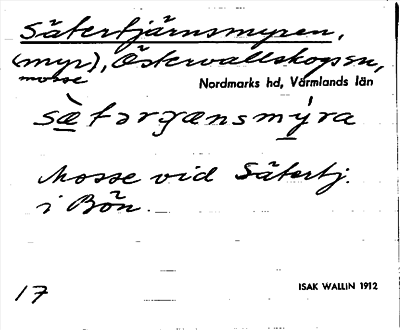 Sätertjärnsmyren,
(myr), Östervallskogsn,
mosse
Nordmarks hd, Värmlands län
sæ̀tərɟænsmýra
Mosse vid Sätertj.
i Bön.
17
ISAK WALLIN 1912